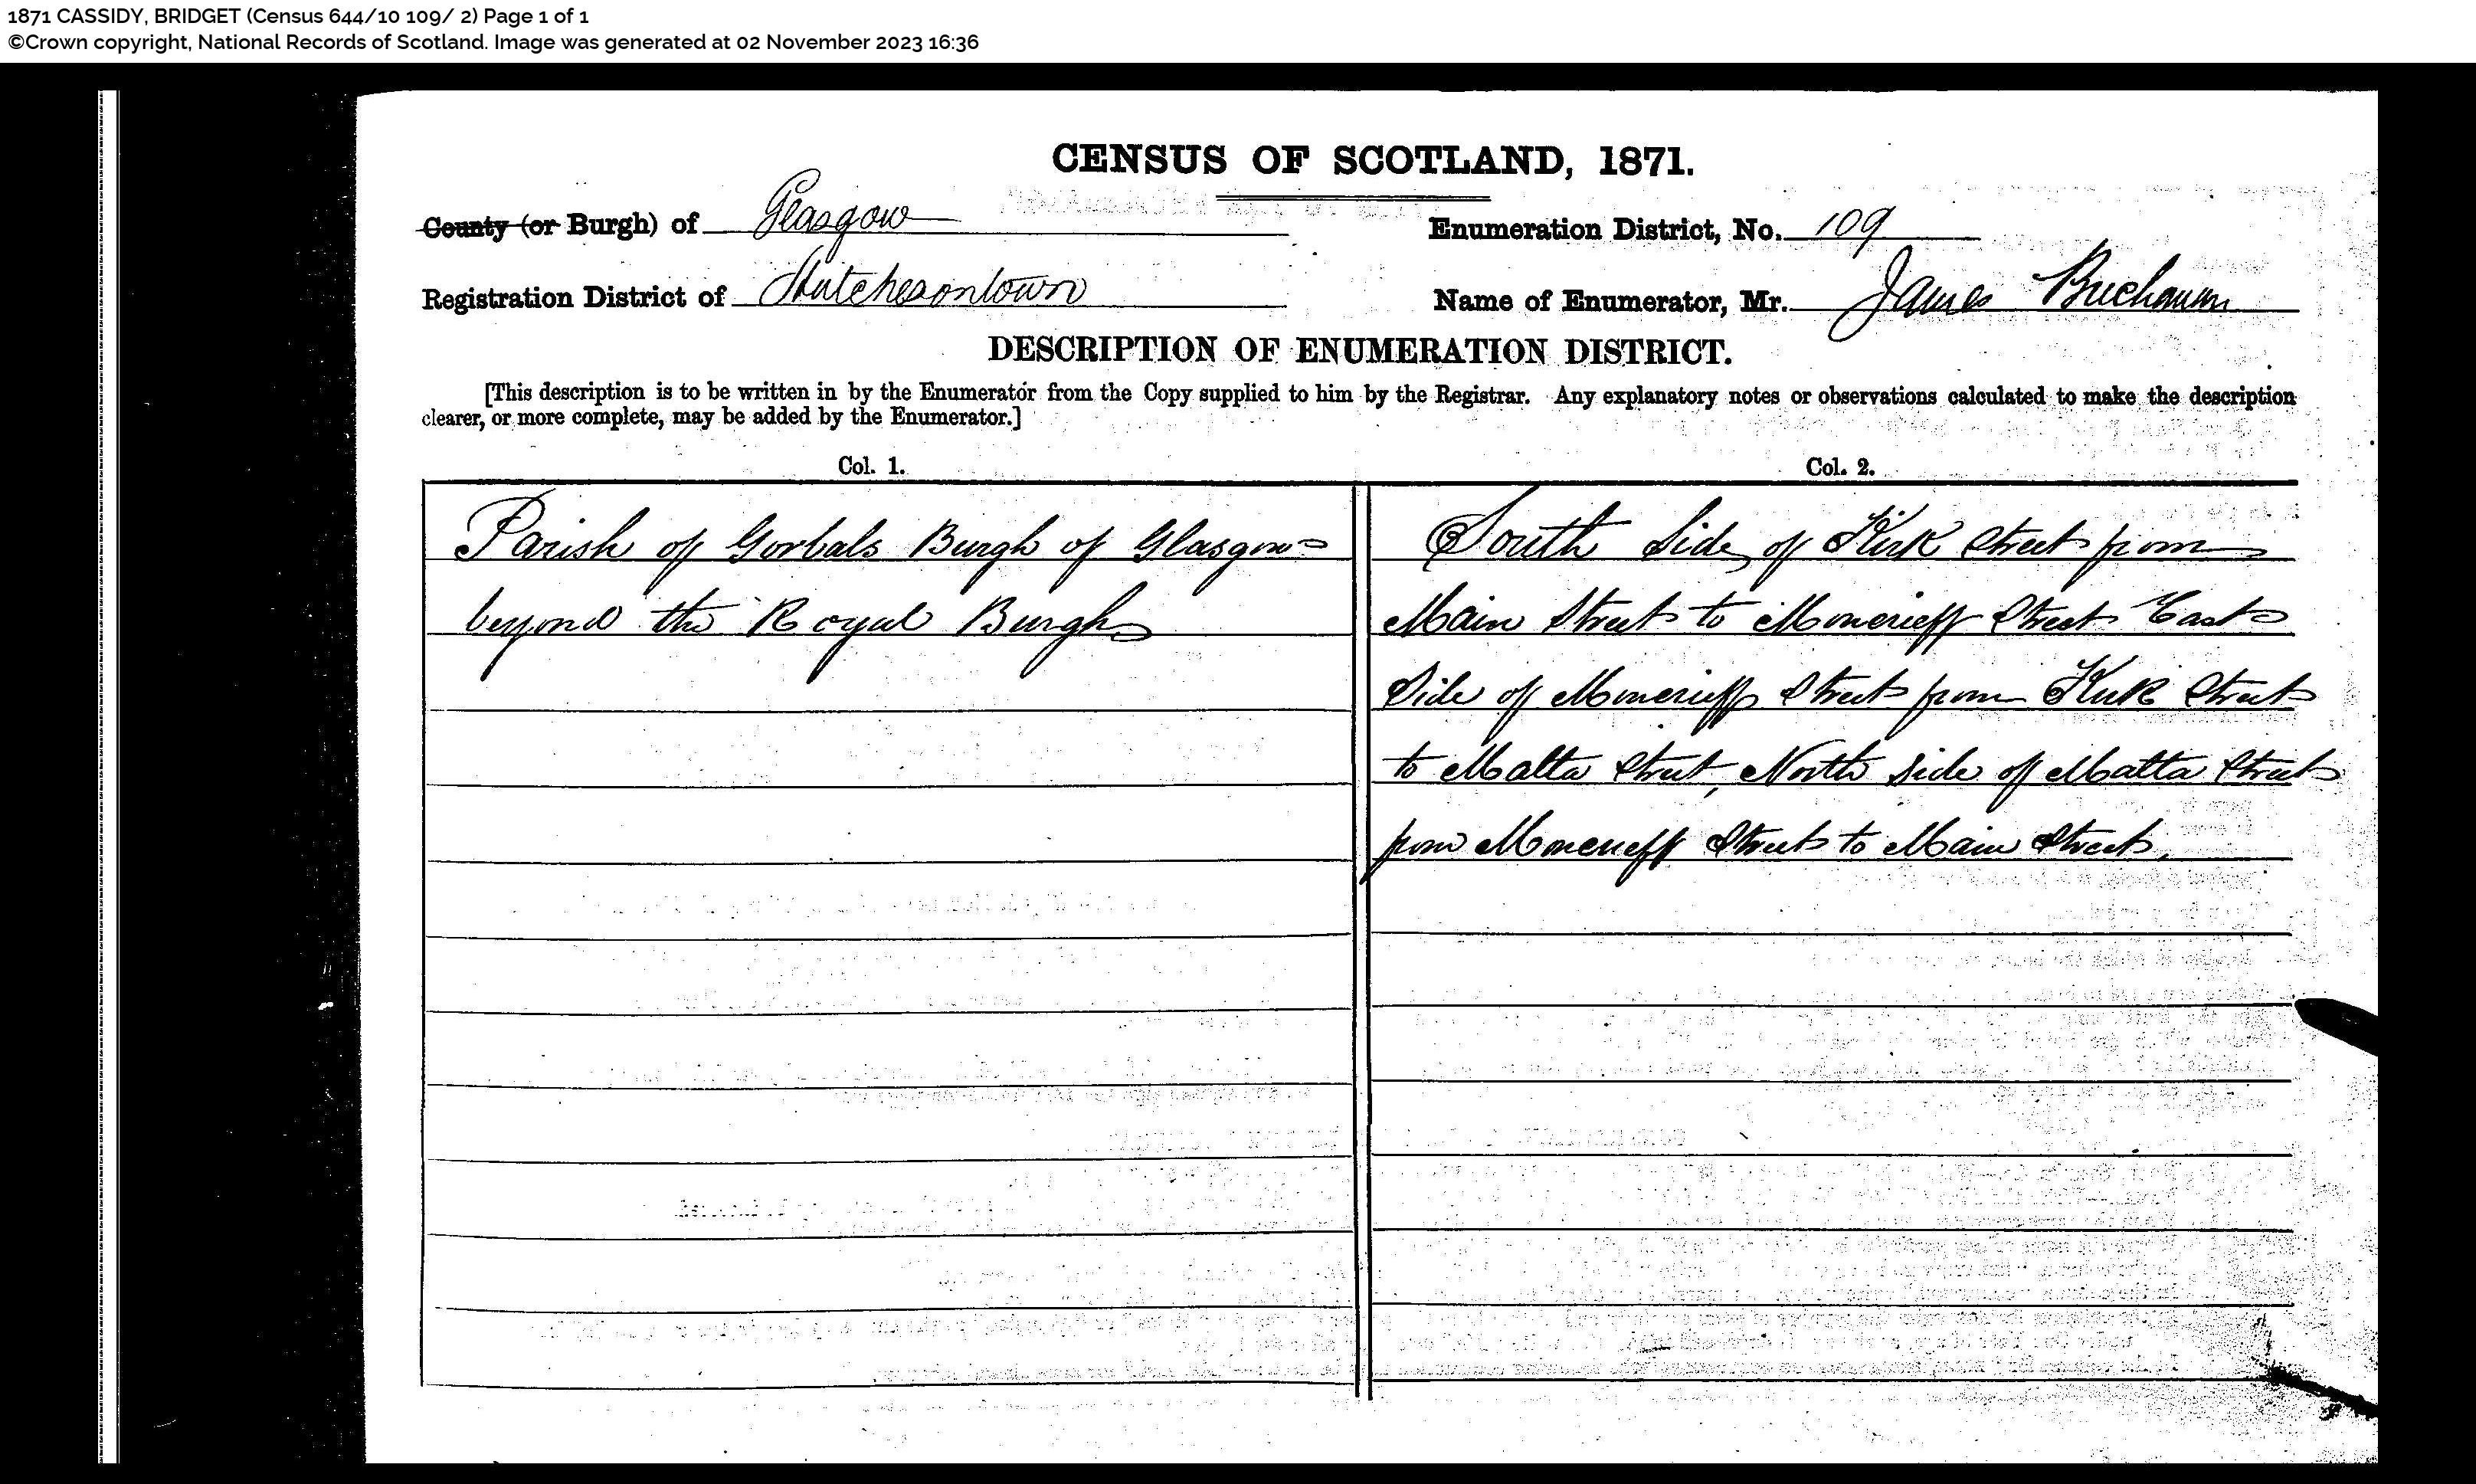 1871 CASSIDY, BRIDGET (Census 644/10 109/ 2) Page 1 of 1
©Crown copyright, National Records of Scotland. Image was generated at 02 November 2023 16:36
CENSUS OF SCOTLAND, 1871.
County (or Burgh) of Glasgow
Enumeration District, No. 109
Registration District of Hutchesontown
Name of Enumerator, Mr. James Buchanan
DESCRIPTION OF ENUMERATION DISTRICT.
[This description is to be written in by the Enumerator from the Copy supplied to him by the Registrar. Any explanatory notes or observations calculated to make the description
clearer, or more complete, may be added by the Enumerator.]
Col. 1.
Parish of Gorbals Burgh of Glasgow
beyond the Royal Burgh
Col. 2.
South Side of Kirk Street from
Main Street to Moncrieff Street East
Side of Moncrieff Street from Kirk Street
to Malta Street, North side of Malta Street
from Moncrieff Street to Main Street.